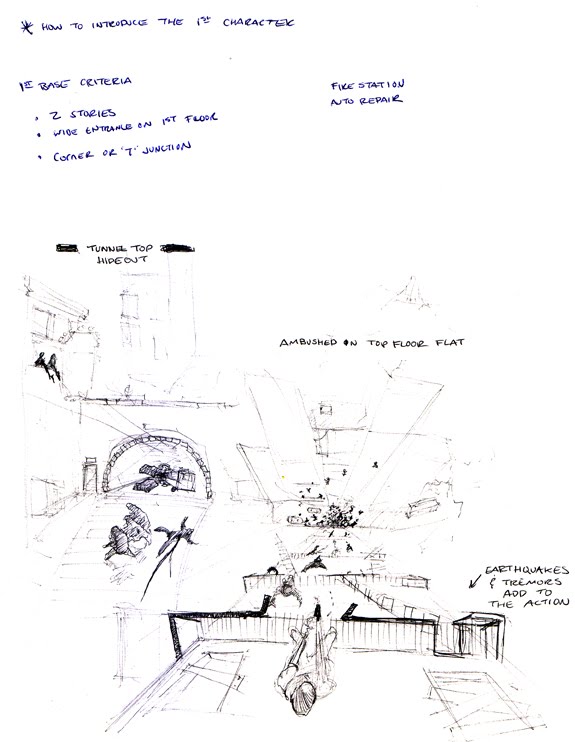 * HOW TO INTRODUCE THE 1ST CHARACTER
1ST BASE CRITERIA
• 2 STORIES
• WIDE ENTRANCE ON 1ST FLOOR
• CORNER OR 'T' JUNCTION
FIRE STATION
AUTO REPAIR
TUNNEL TOP
HIDEOUT
AMBUSHED ON TOP FLOOR FLAT
EARTHQUAKES
& TREMORS
ADD TO
THE ACTION